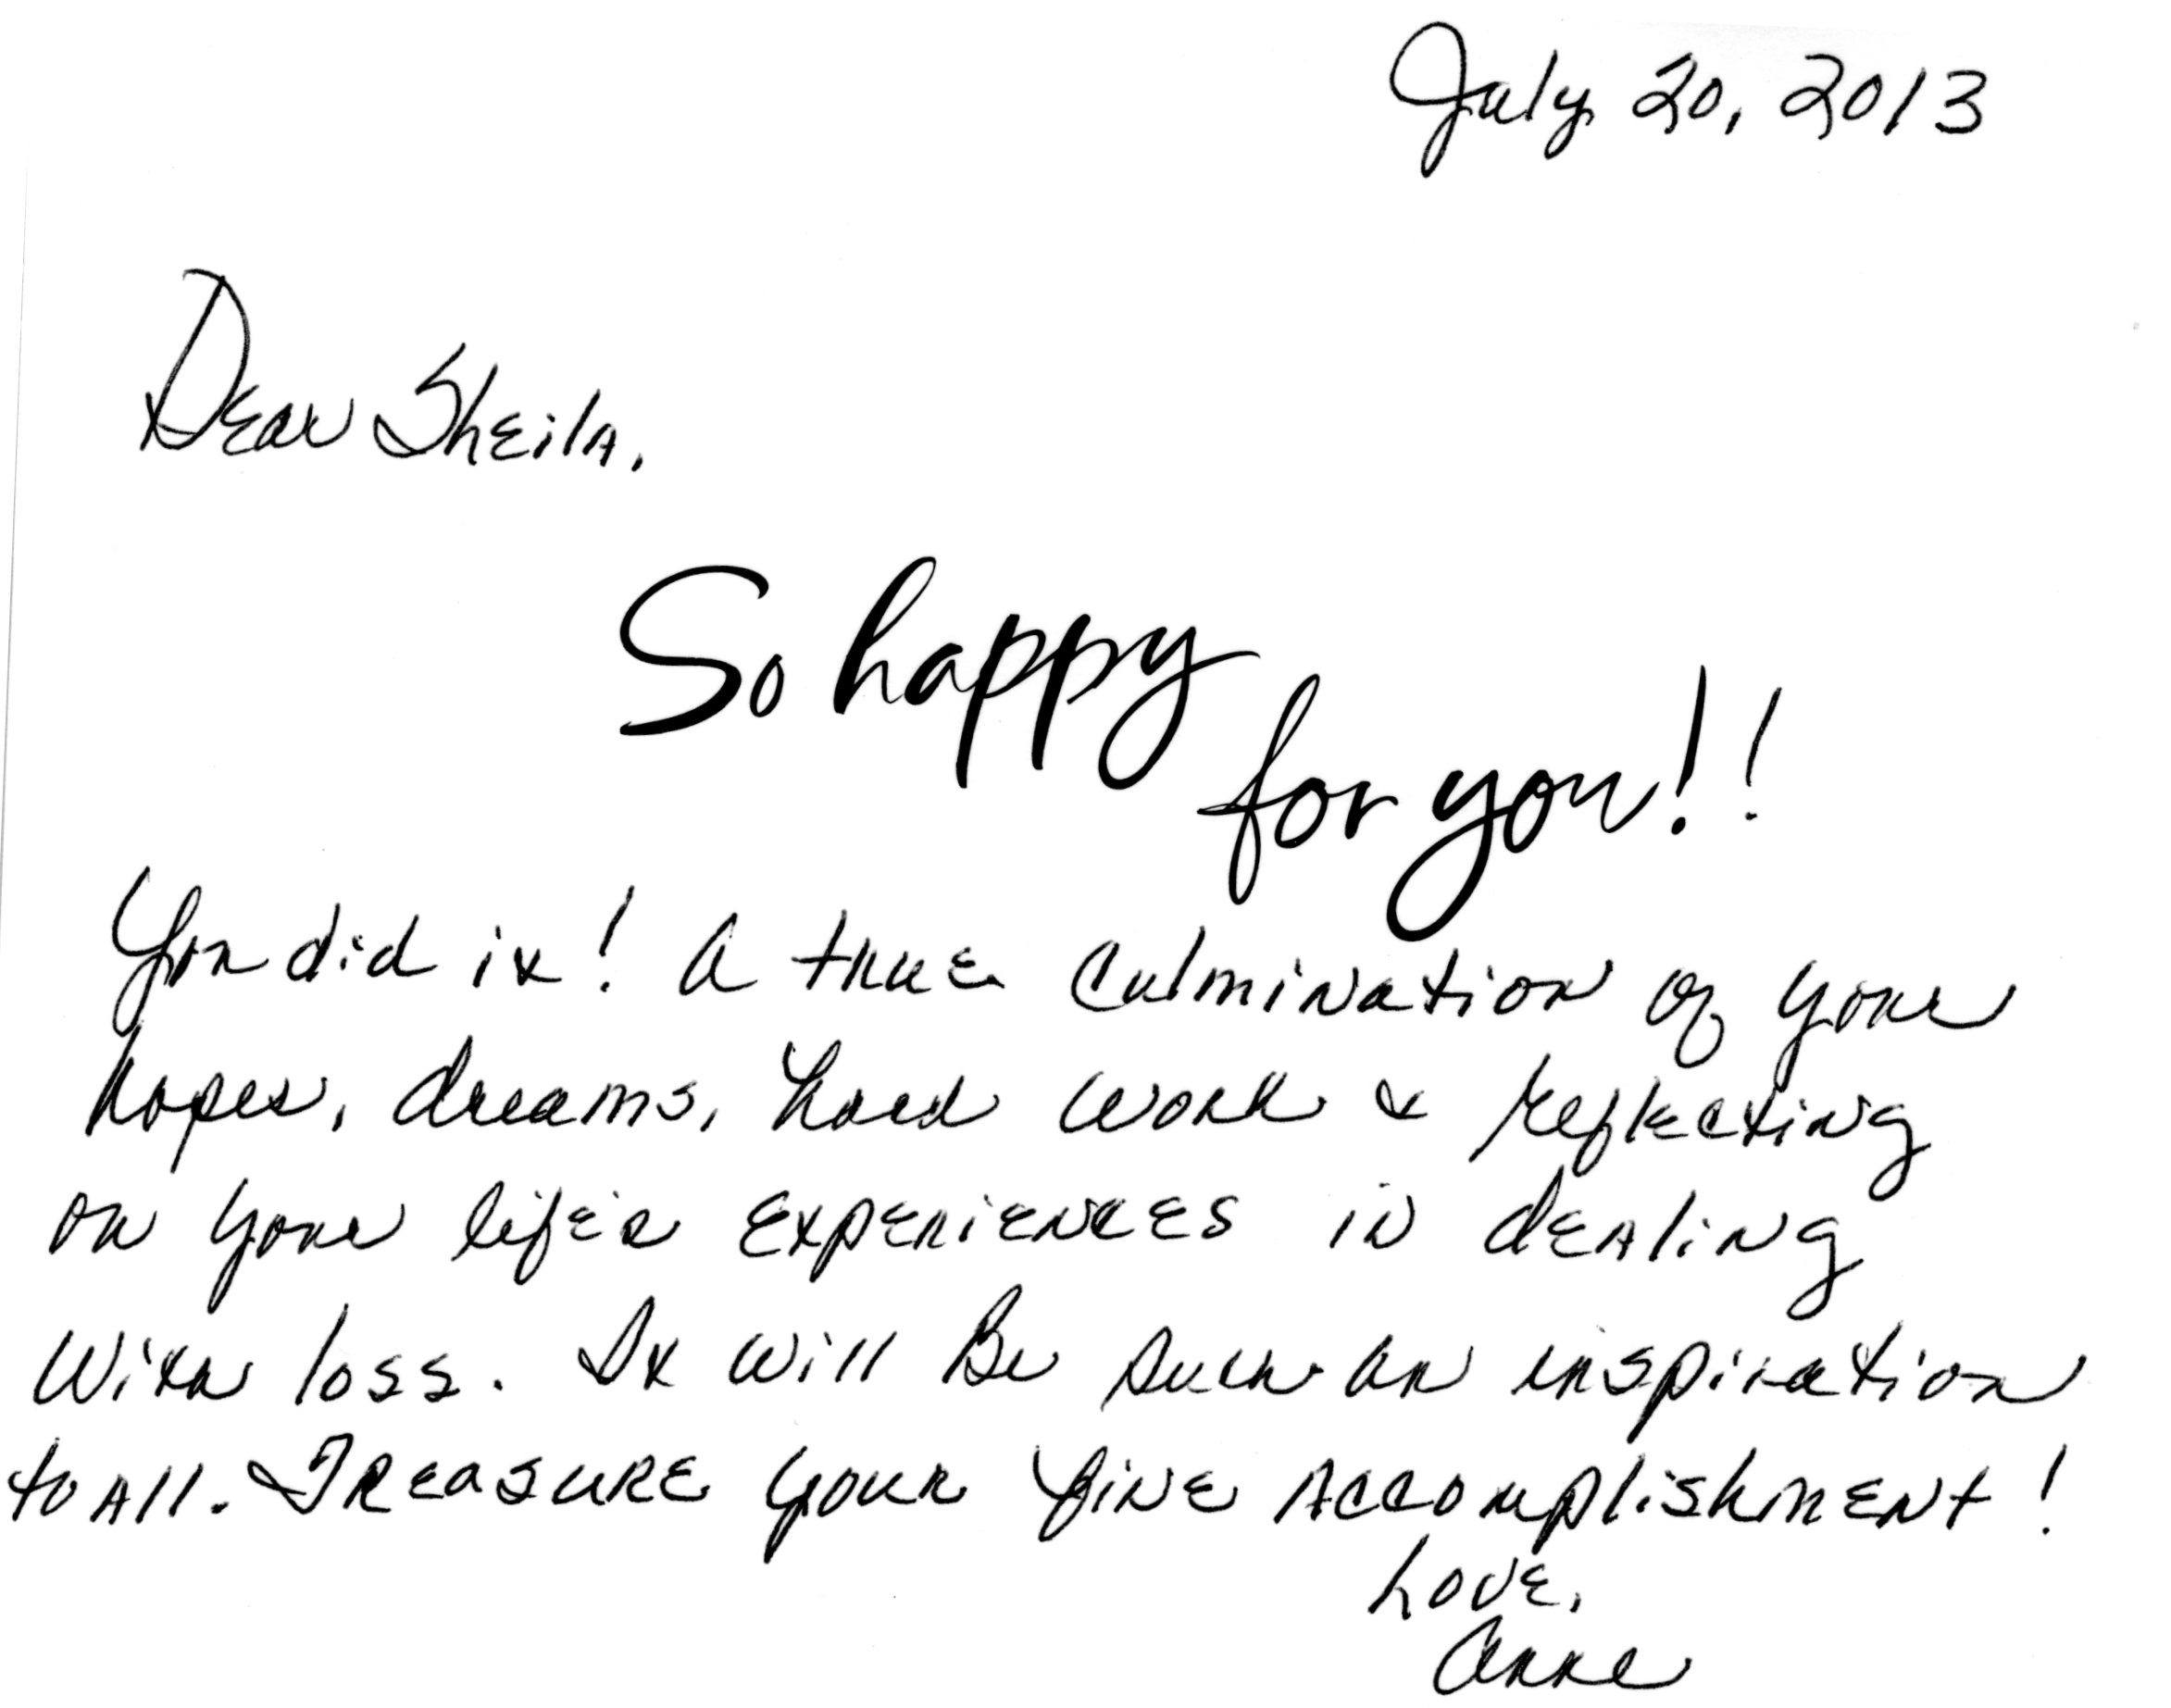 July 20, 2013
Dear Sheila,
So happy
for you!!
You did it! A true culmination of your
hopes, dreams, hard work & reflecting
on your life's experiences in dealing
with loss. It will be such an inspiration
to all. Treasure your fine accomplishment!
Love,
Anne